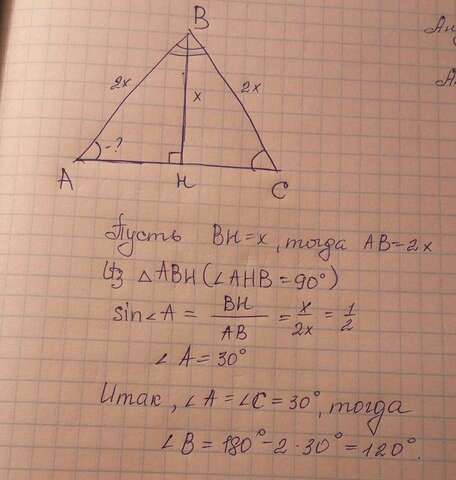 B
2x
x
2x
-?
A
H
C
Пусть BH=x, тогда AB=2x
Из △ABH (∠AHB=90°)
sin∠A = BH/AB = x/2x = 1/2
∠A=30°
Итак, ∠A=∠C=30°, тогда
∠B=180°-2·30°=120°.